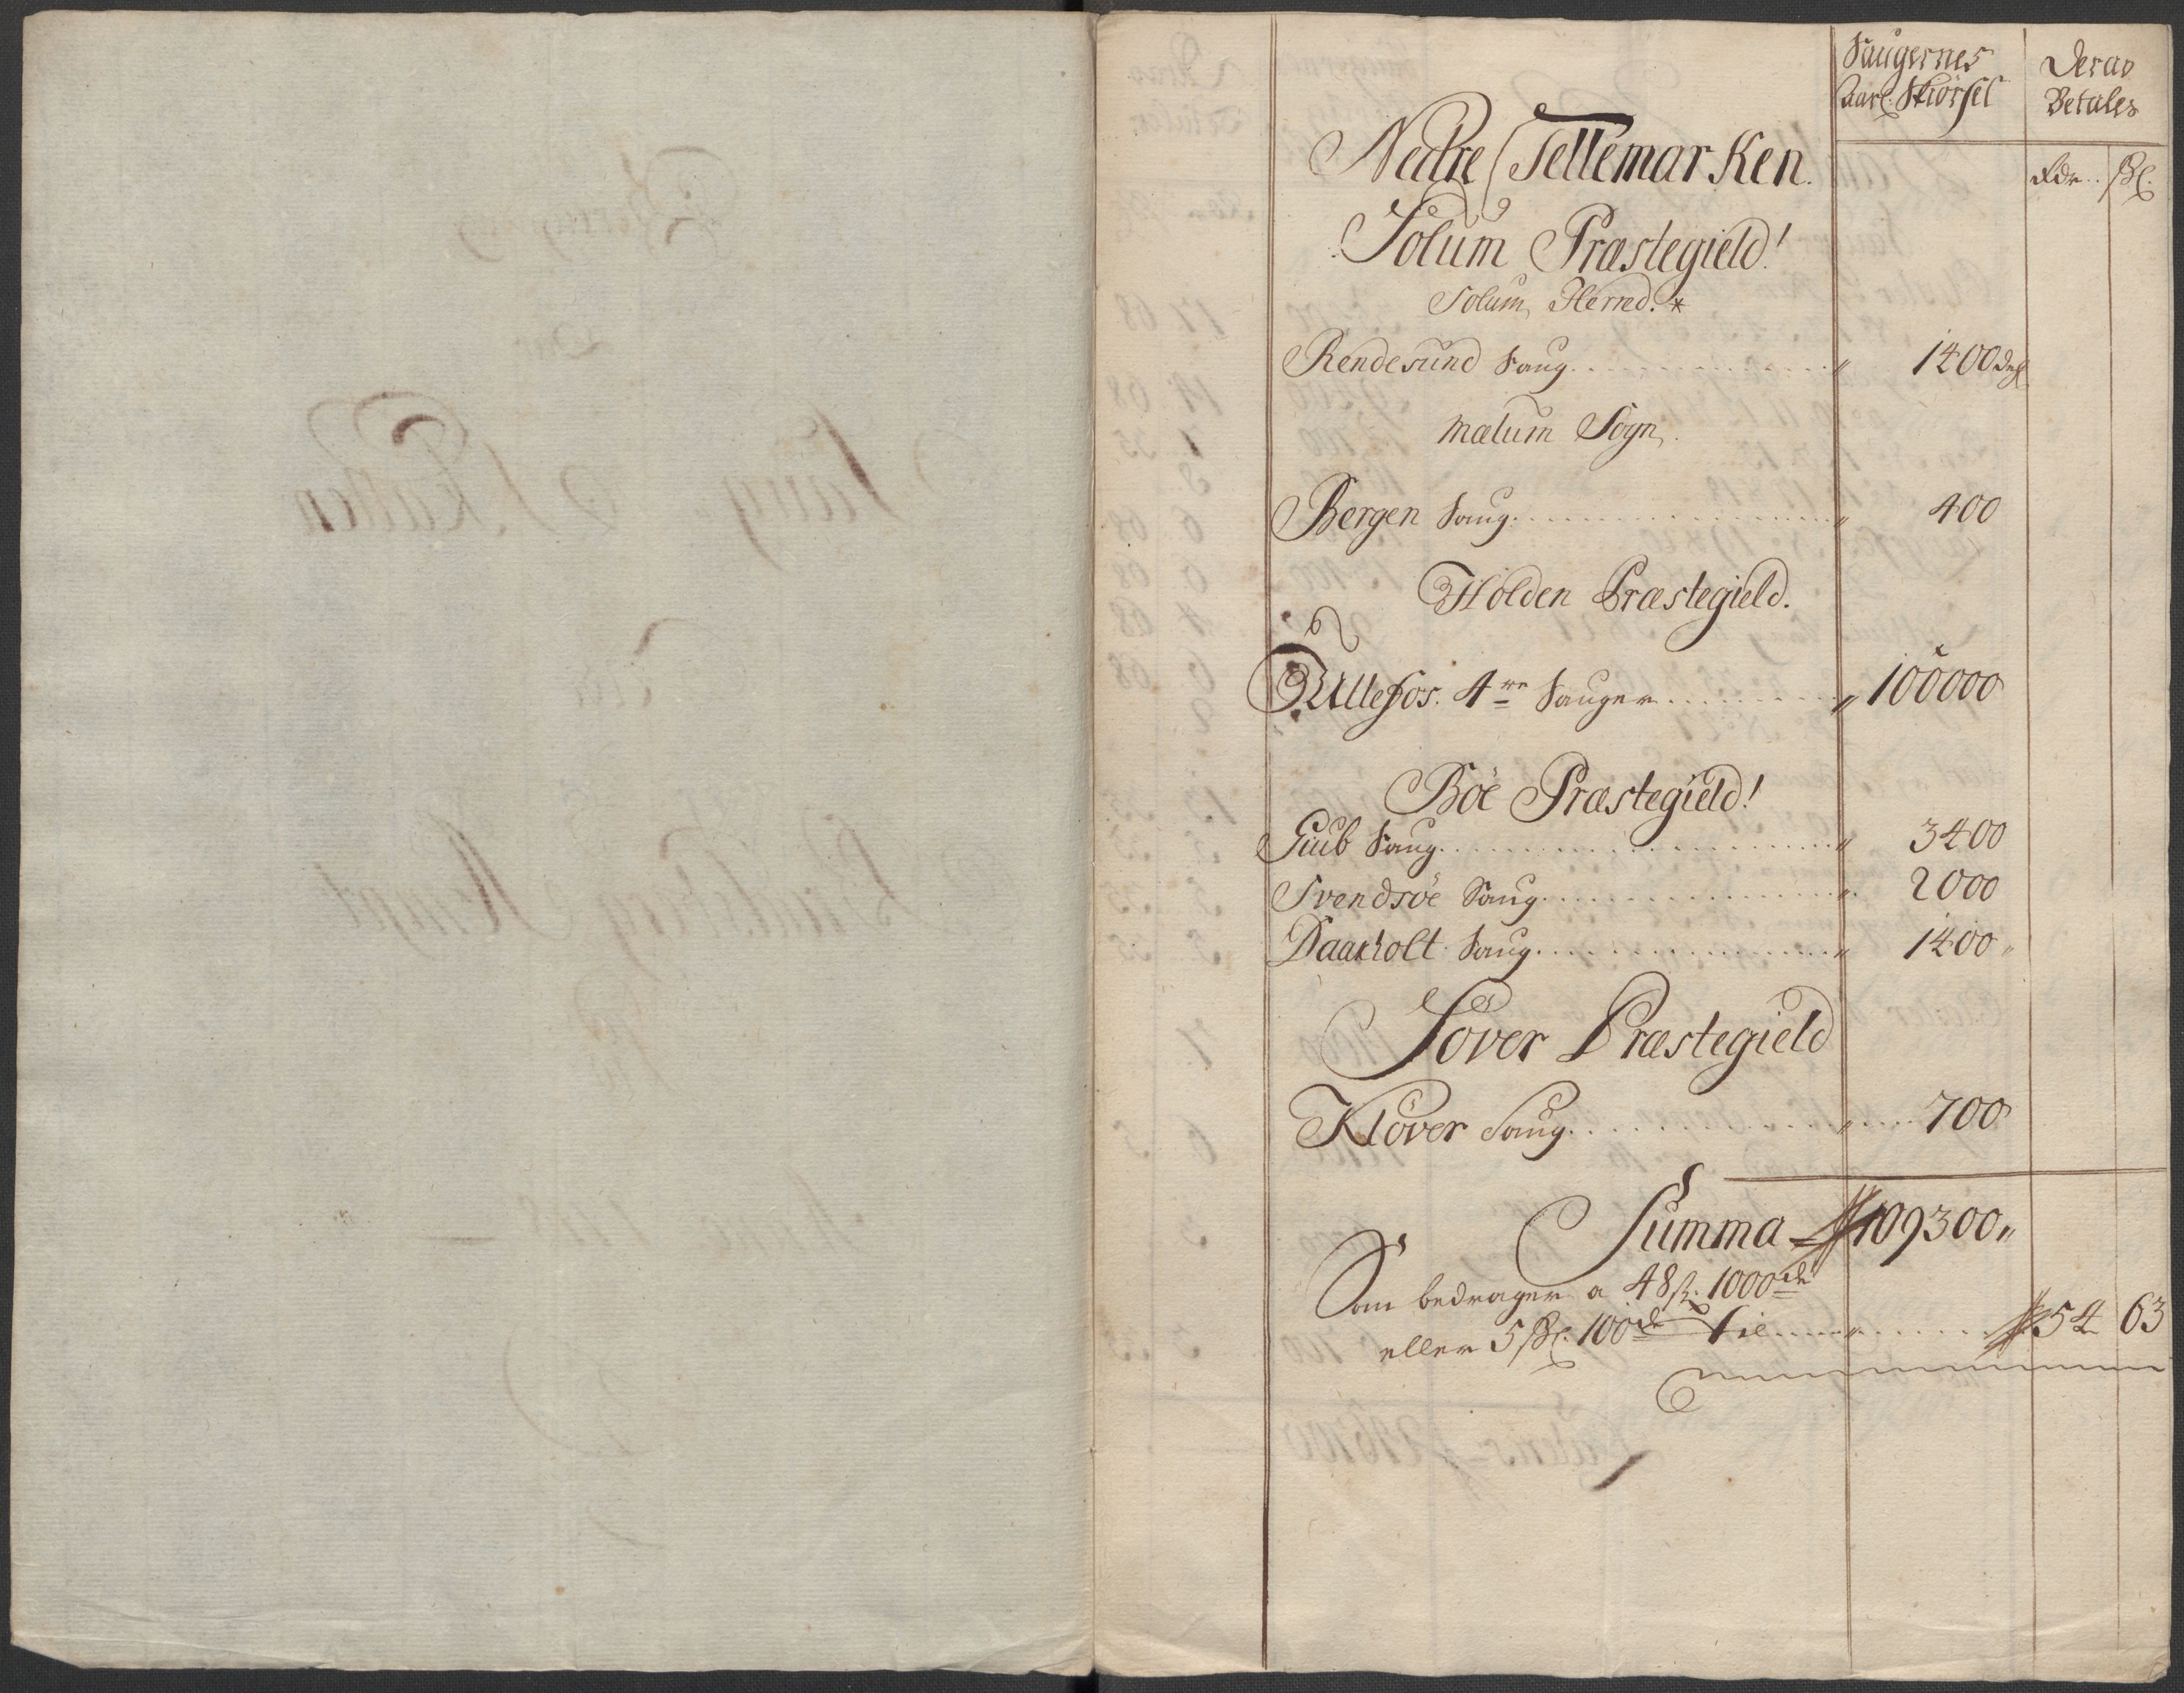 Saugernes
aarl. Skiörsel
Derav
Betales
Rdr. ß
Nedre Tellemarken.
Solum Præstegield!
Solum Herred. *
Rendesund Saug. 1400 del
Mælum Sogn.
Bergen Saug. 400
Holden Præstegield.
Ullefos. 4re Sauger 100000
Böe Præstegield!
Giub Saug 3400
Svendsöe Saug 2000
Daarholt Saug 1400
Söver Præstegield
Klöver Saug 700
Summa 109300
Som bedrager a 48 ß. 1000de
eller 5 ß 100de til 54 63